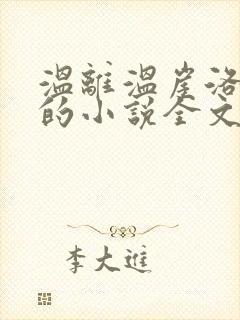 温離温崖洛
的小说全文
李大進